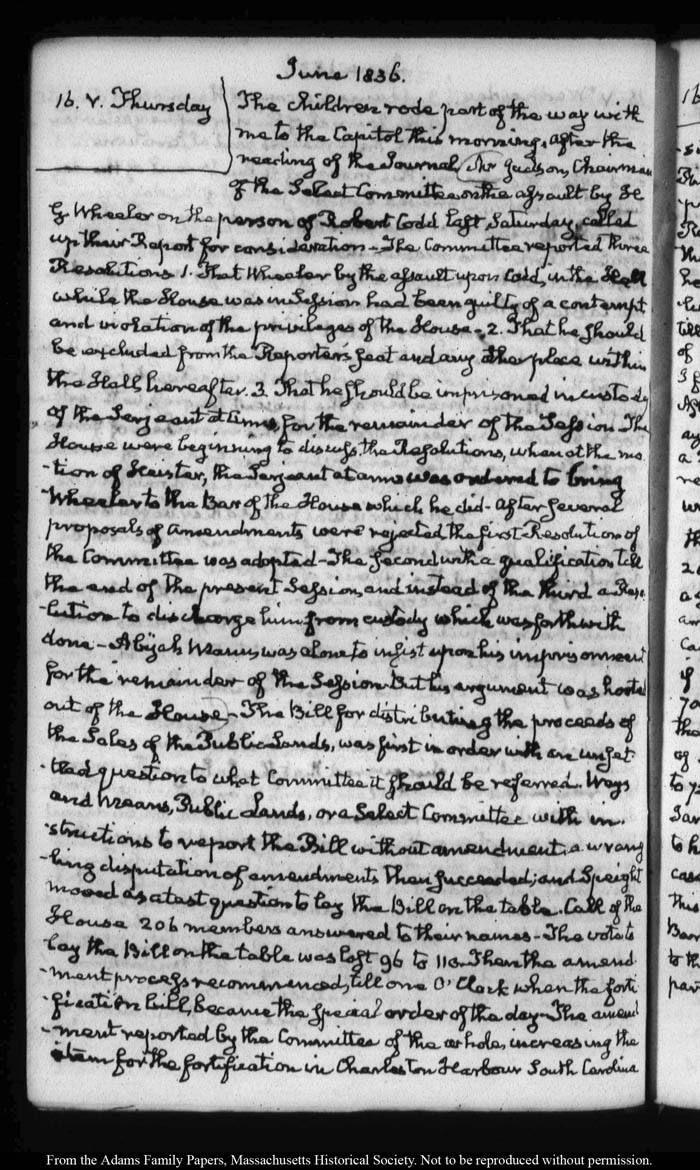 June 1836.
16. V. Thursday
The children rode part of the way with
me to the Capitol this morning, after the
reading of the Journal, Mr Jackson, Chairman
of the Select Committee on the assault by He
G Wheeler on the person of Robert Codd last Saturday, called
up their Report for consideration - The Committee reported three
Resolutions 1. That Wheeler by the assault upon Codd, in the Hall
while the House was in Session had been guilty of a contempt
and violation of the privileges of the House - 2. That he should
be excluded from the Reporter's seat and any other place within
the Hall, hereafter. 3. That he should be imprisoned in custody
of the Serjeant at Arms, for the remainder of the Session. The
House were beginning to discuss the Resolutions, when at the mo
-tion of Heister, the Serjeant at arms was ordered to bring
Wheeler to the Bar of the House which he did - After several
proposals of amendments were rejected the first Resolution of
the Committee was adopted - The second with a qualification till
the end of the present Session, and instead of the third a Reso
-lution to discharge him from custody which was forthwith
done - Abijah Mann, was alone to insist upon his imprisonment
for the remainder of the Session. But his argument was hooted
out of the House - The Bill for distributing the proceeds of
the Sales of the Public Lands, was first in order with an unset
-tled question to what Committee it should be referred. Ways
and Means, Public Lands, or a Select Committee with in-
-structions to report the Bill without amendment. a wrang
-ling disputation of amendments then succeeded; and Speight
moved as a test question to lay the Bill on the table. Call of the
House 206 members answered to their names - The vote to
lay the Bill on the table was lost 96 to 113. Then the amend
-ment process recommenced, till one O'Clock when the forti
-fication bill, became the special order of the day - The amend
-ment reported by the Committee of the whole, increasing the
item for the fortification in Charleston Harbour South Carolina
From the Adams Family Papers, Massachusetts Historical Society. Not to be reproduced without permission.